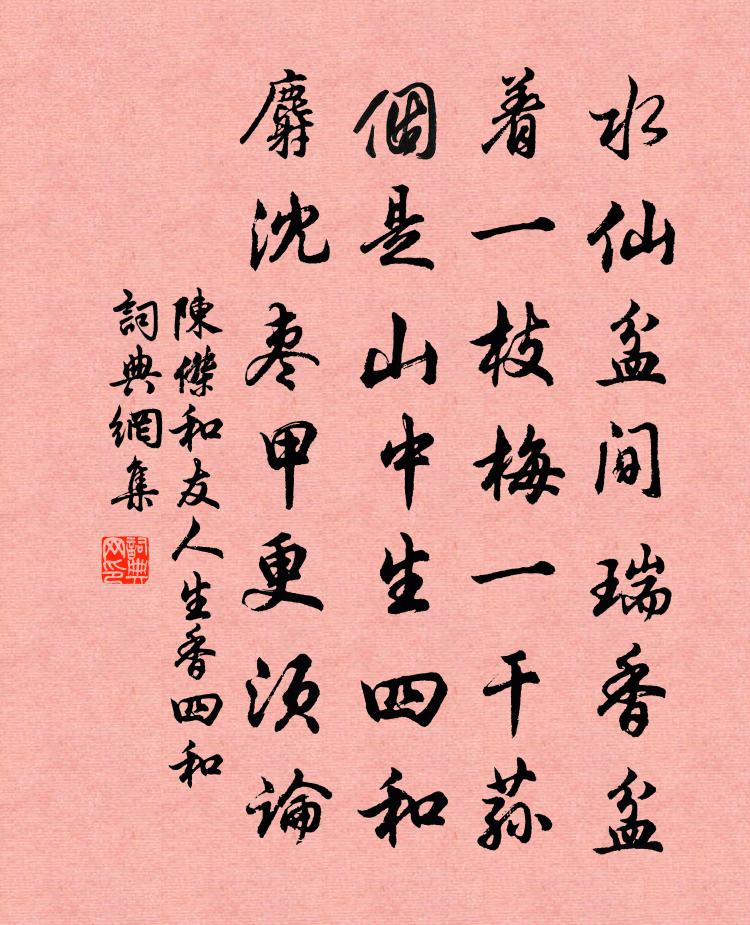 水仙盆間瑞香盆
着一枝梅一干蓀
個是山中生四和
麝沈棗甲更須論
陳傑和友人生香四和
詞典網集
詞典網印